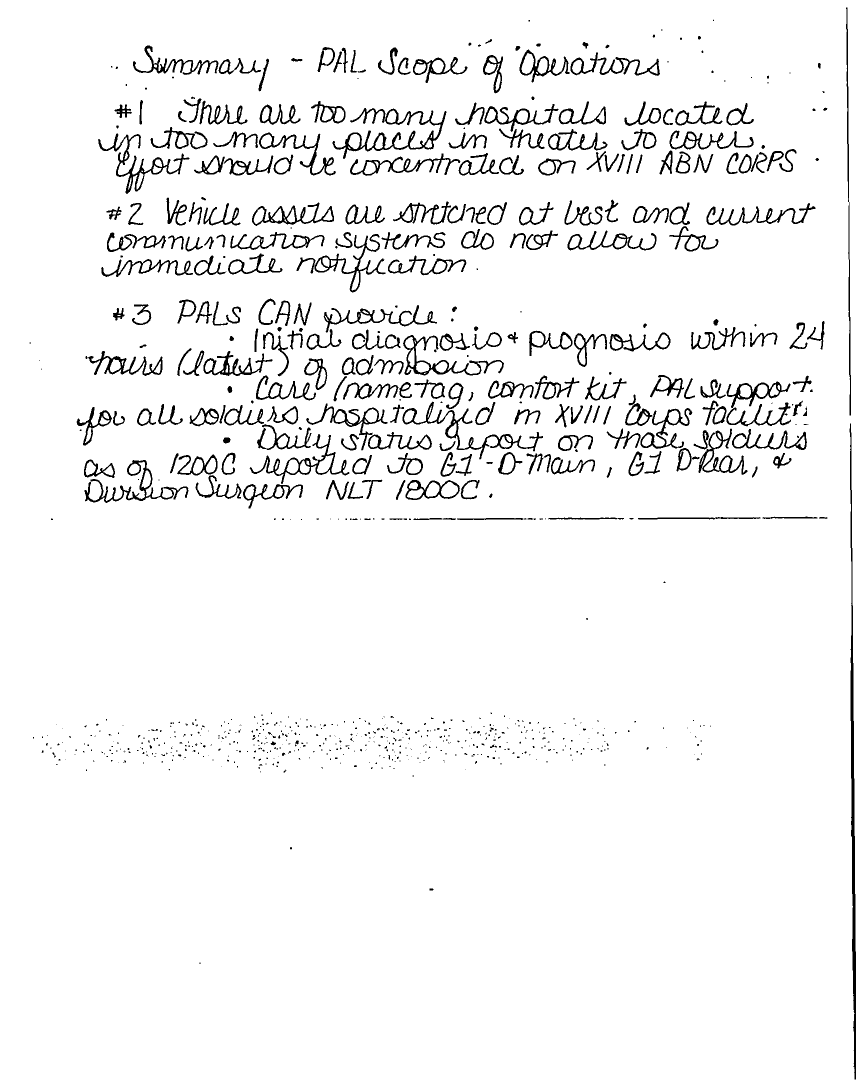 Summary - PAL Scope of Operations
#1 There are too many hospitals located
in too many places in theater to cover.
Effort should be concentrated on XVIII ABN CORPS
#2 Vehicle assets are stretched at best and current
communication systems do not allow for
immediate notification.
#3 PALs CAN provide:
• Initial diagnosis + prognosis within 24
hours (latest) of admission
• Care (name tag, comfort kit, PAL support
for all soldiers hospitalized in XVIII Corps
• Daily status report on those soldiers
as of 1200C reported to G1-D-Main, G1 D-Rear, &
Division Surgeon NLT 1800C.